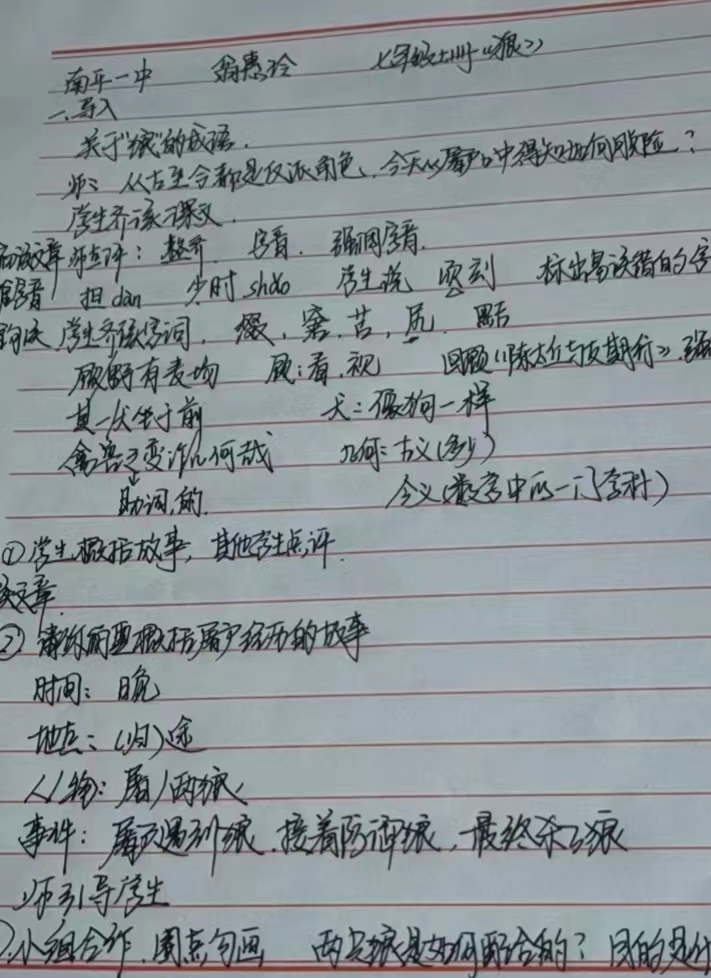 南平一中 翁惠玲 七年级上册《狼》
一、导入
关于"狼"的成语.
师: 从古至今都是反派角色, 今天从屠户口中得知如何风险?
学生齐读课文.
初读文章 师点评: 整齐. 字音. 强调字音.
字音 担dàn 少时shǎo 学生说 顷刻 标出易读错的字
学生齐读字词, 缀, 窘, 苫, 尻 黠
顾野有麦场 顾: 看, 视 回顾《陈太丘与友期行》.
其一犬坐于前 犬: 像狗一样
禽兽之变诈几何哉 几何: 古义(多少)
助词, 的. 今义(数学中的一门学科)
①学生概括故事, 其他学生点评.
文章
② 请你简要概括屠户经历的故事
时间: 日晚
地点: (归)途
人物: 屠户 两狼
事件: 屠户遇到狼, 接着防御狼, 最终杀了狼
师引导学生
小组合作, 圈点勾画 两只狼是如何配合的? 目的是什